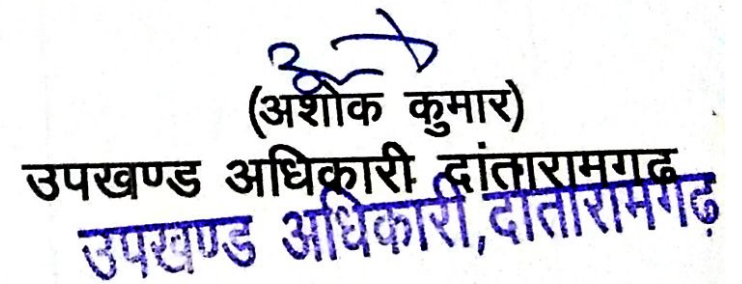 (अशोक कुमार)
उपखण्ड अधिकारी दांतारामगढ
उपखण्ड अधिकारी,दांतारामगढ़